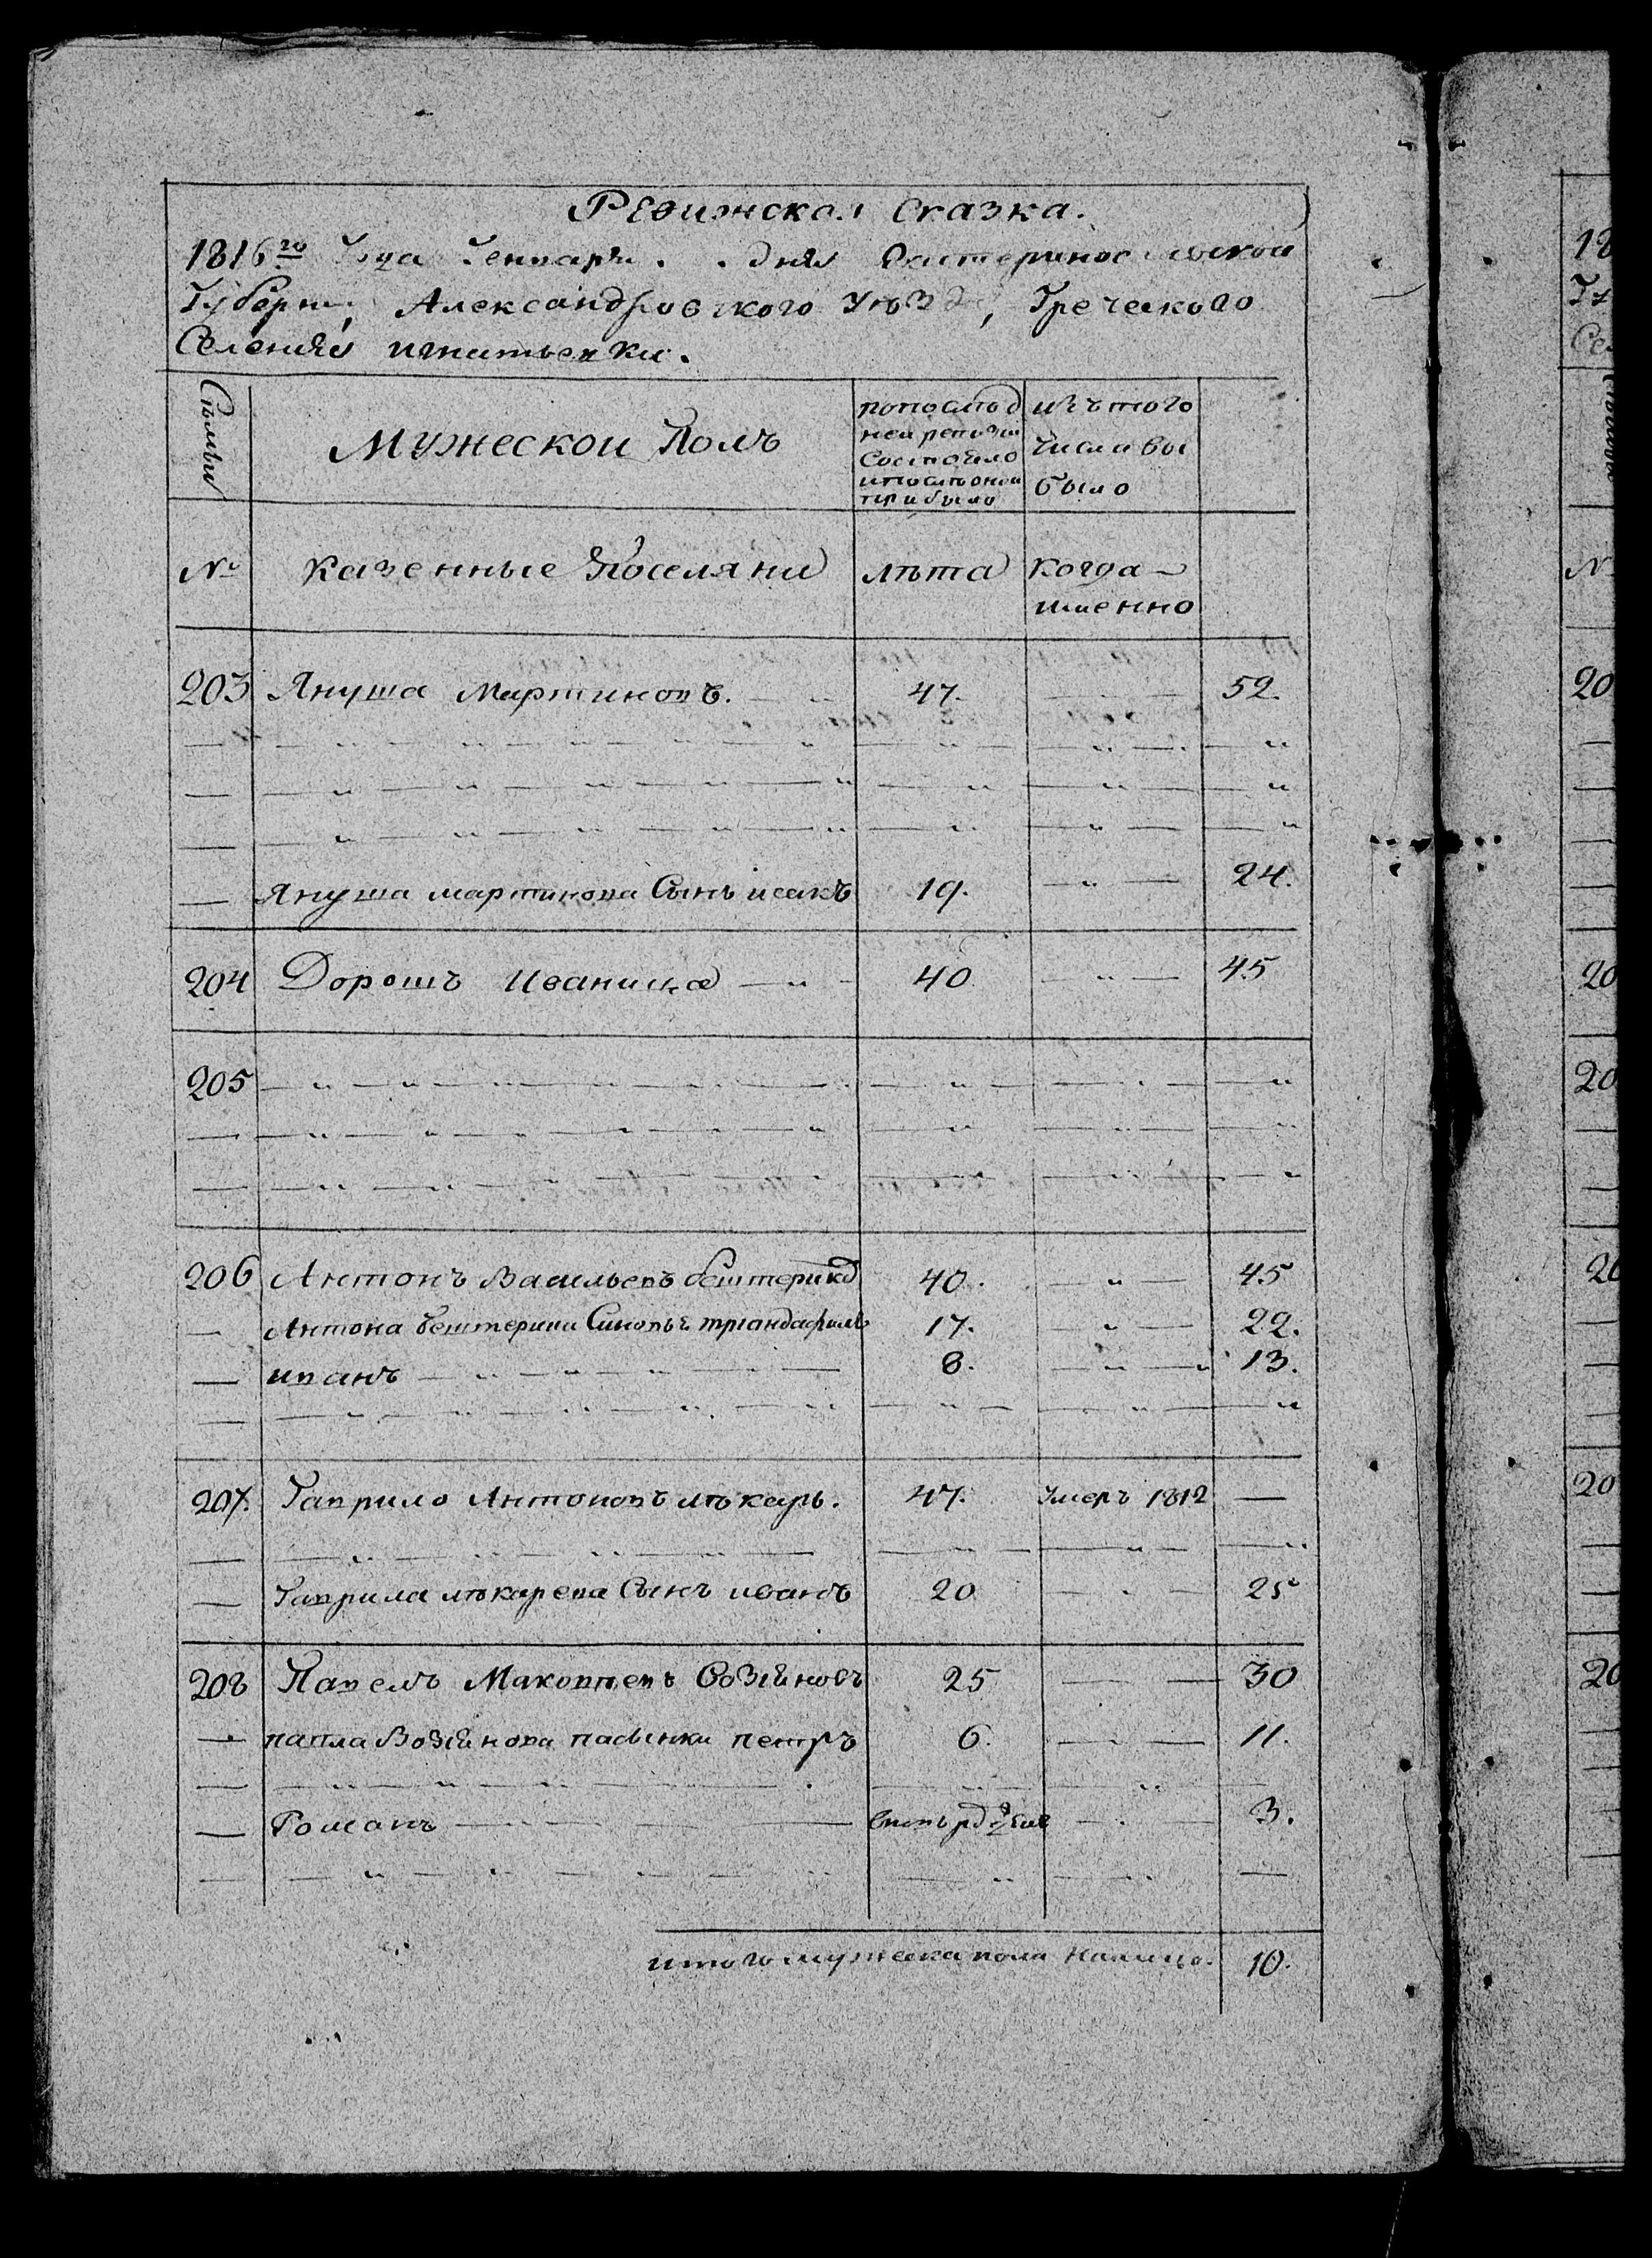 Ревижская Сказка.
1816го Года Генваря . . дня Екатеринословской
Губерни, Александровского Уѣзда, Греческого
Селения игнатьевки.
Семьи
Мужеской Полъ
попослѣд
ней ревизии
Состояло
ипослѣ оной
прибыло
изъ того
числа вы
было
№
казенные Поселяни
лѣта
когда
именно
203 Януша Мартиновъ. 47. 52.
Януша мартинова Сынъ исакъ 19. 24.
204 Дорошъ Иваница 40 45
205
206 Антонъ Васильевъ бештерикъ 40. 45
Антона бештерика Синовья триандафилъ 17. 22.
иванъ 8. 13.
207. Гаврило Антоновъ лѣкарь. 47. Умеръ 1812
Гаврила лѣкарева Сынъ иванъ 20 25
208 Павелъ Маковѣевъ Возіяновъ 25 30
павла Возіянова пасынки петръ 6. 11.
Романъ 3.
итого мужеска пола налицо. 10.
18
Гу
Сел
№
20
20
20
20
20
20